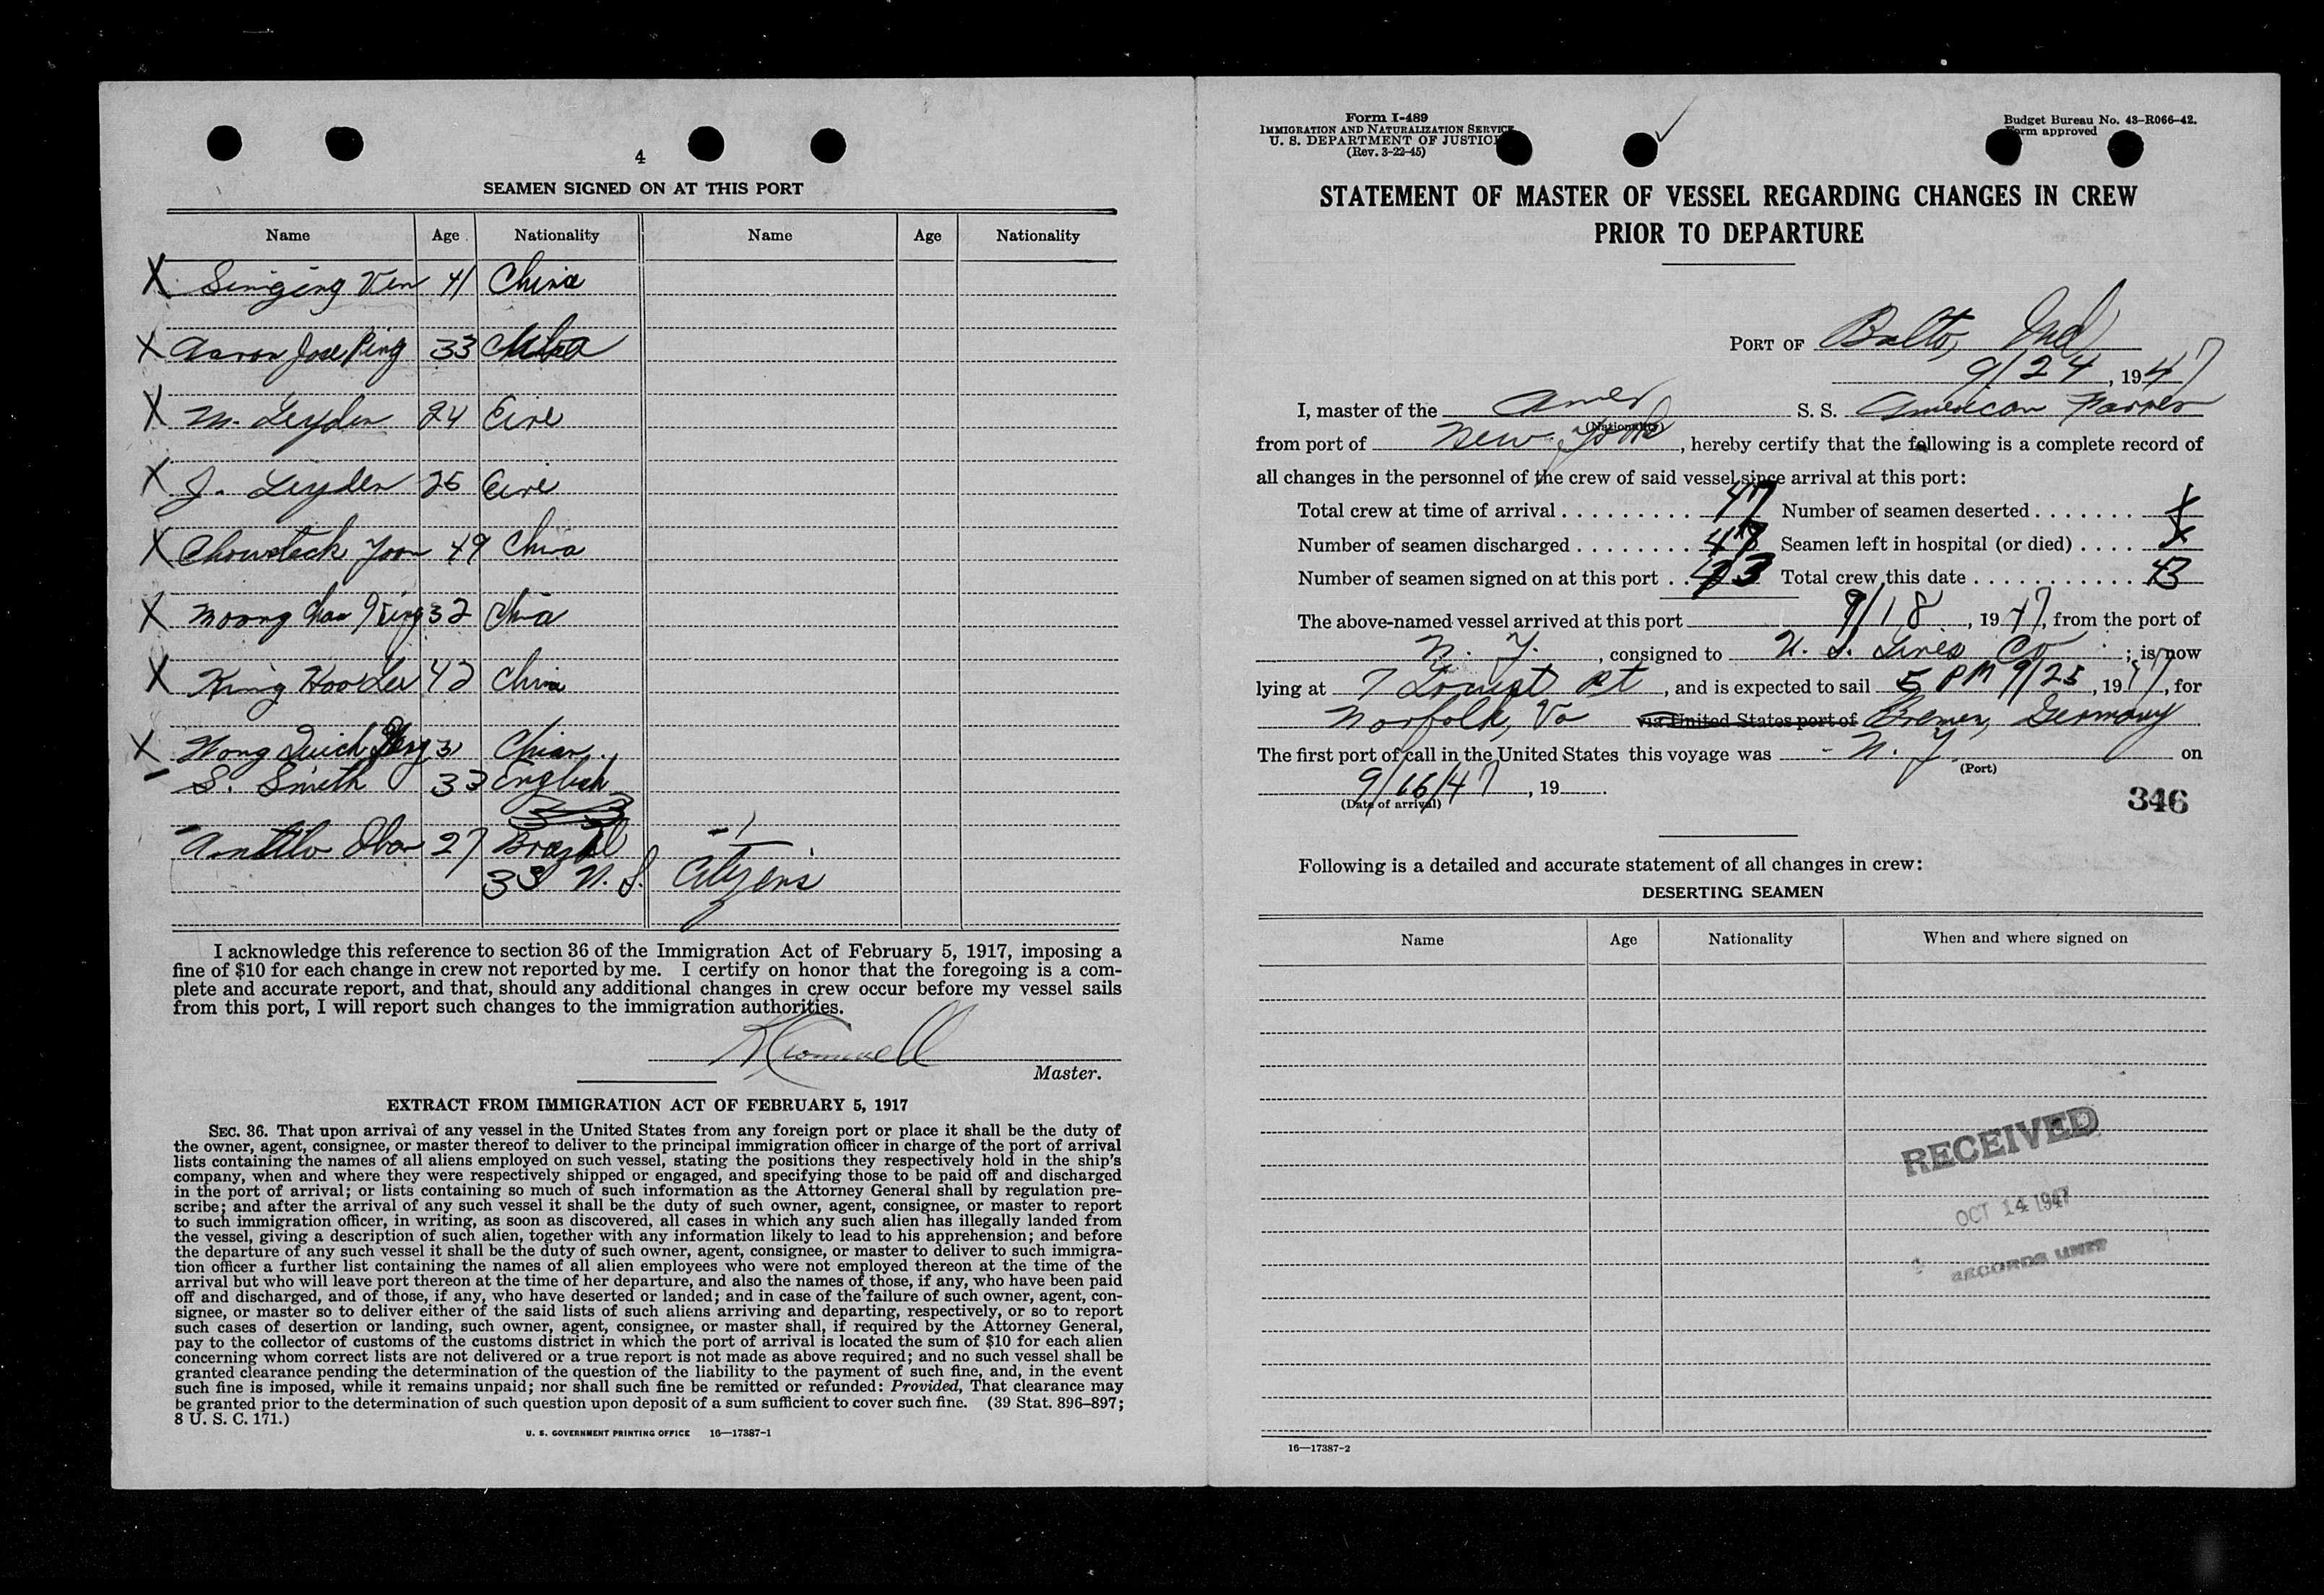 4
SEAMEN SIGNED ON AT THIS PORT
Name Age Nationality Name Age Nationality
X Singing Ven 41 China
X Aaron Jose Ping 33 China
X M. Leyden 24 Eire
X J. Leyden 25 Eire
X Chowteck Yoon 49 China
X Moong Chan 32 China
X King Hoo Lee 42 China
X Wong Quick 31 China
- S. Smith 33 English
- Antilo 27 Brazil
33 U. S. Citizens
I acknowledge this reference to section 36 of the Immigration Act of February 5, 1917, imposing a
fine of $10 for each change in crew not reported by me. I certify on honor that the foregoing is a com-
plete and accurate report, and that, should any additional changes in crew occur before my vessel sails
from this port, I will report such changes to the immigration authorities.
Master.
EXTRACT FROM IMMIGRATION ACT OF FEBRUARY 5, 1917
SEC. 36. That upon arrival of any vessel in the United States from any foreign port or place it shall be the duty of
the owner, agent, consignee, or master thereof to deliver to the principal immigration officer in charge of the port of arrival
lists containing the names of all aliens employed on such vessel, stating the positions they respectively hold in the ship's
company, when and where they were respectively shipped or engaged, and specifying those to be paid off and discharged
in the port of arrival; or lists containing so much of such information as the Attorney General shall by regulation pre-
scribe; and after the arrival of any such vessel it shall be the duty of such owner, agent, consignee, or master to report
to such immigration officer, in writing, as soon as discovered, all cases in which any such alien has illegally landed from
the vessel, giving a description of such alien, together with any information likely to lead to his apprehension; and before
the departure of any such vessel it shall be the duty of such owner, agent, consignee, or master to deliver to such immigra-
tion officer a further list containing the names of all alien employees who were not employed thereon at the time of the
arrival but who will leave port thereon at the time of her departure, and also the names of those, if any, who have been paid
off and discharged, and of those, if any, who have deserted or landed; and in case of the failure of such owner, agent, con-
signee, or master so to deliver either of the said lists of such aliens arriving and departing, respectively, or so to report
such cases of desertion or landing, such owner, agent, consignee, or master shall, if required by the Attorney General,
pay to the collector of customs of the customs district in which the port of arrival is located the sum of $10 for each alien
concerning whom correct lists are not delivered or a true report is not made as above required; and no such vessel shall be
granted clearance pending the determination of the question of the liability to the payment of such fine, and, in the event
such fine is imposed, while it remains unpaid; nor shall such fine be remitted or refunded: Provided, That clearance may
be granted prior to the determination of such question upon deposit of a sum sufficient to cover such fine. (39 Stat. 896–897;
8 U. S. C. 171.)
U. S. GOVERNMENT PRINTING OFFICE 16—17387-1
Form I-489
IMMIGRATION AND NATURALIZATION SERVICE
U. S. DEPARTMENT OF JUSTICE
(Rev. 3-22-45)
Budget Bureau No. 43-R066-42.
Form approved
STATEMENT OF MASTER OF VESSEL REGARDING CHANGES IN CREW
PRIOR TO DEPARTURE
PORT OF Balto, Md
9/24, 1947
I, master of the Amer S. S. American Farmer
(Nationality)
from port of New York, hereby certify that the following is a complete record of
all changes in the personnel of the crew of said vessel since arrival at this port:
Total crew at time of arrival 47 Number of seamen deserted X
Number of seamen discharged 47 Seamen left in hospital (or died) X
Number of seamen signed on at this port 43 Total crew this date 43
The above-named vessel arrived at this port 9/18, 1947, from the port of
N. Y., consigned to U. S. Lines Co; is now
lying at 7 Locust Pt, and is expected to sail 5 PM 9/25, 1947, for
Norfolk, Va via United States port of Bremen, Germany
The first port of call in the United States this voyage was N. Y. on
(Port)
9/16/47, 19
(Date of arrival)
346
Following is a detailed and accurate statement of all changes in crew:
DESERTING SEAMEN
Name Age Nationality When and where signed on
RECEIVED
OCT 14 1947
RECORDS UNIT
16—17387-2